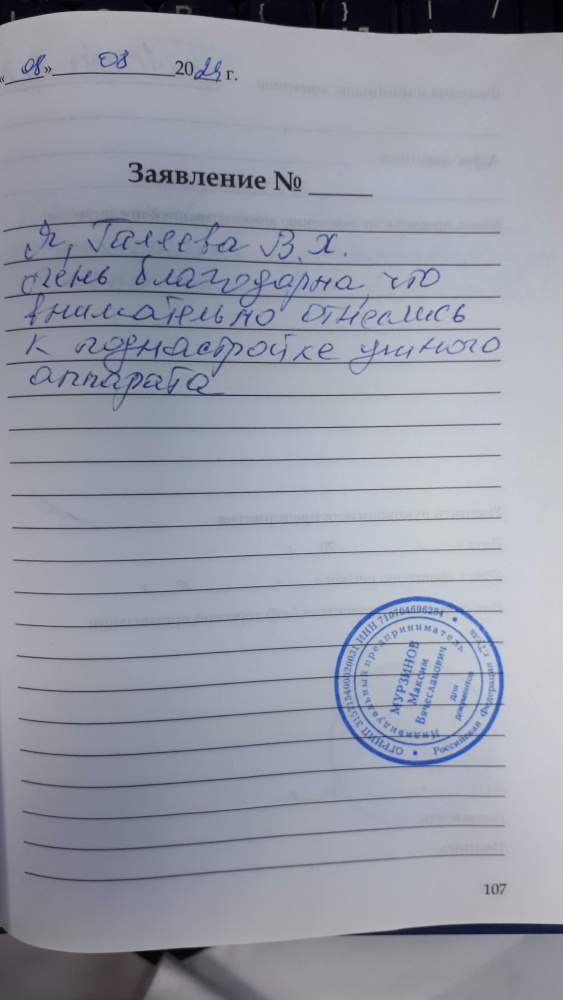 «08» 08 2024 г.
Заявление №
Я, Галеева В.Х.
очень благодарна, что
внимательно отнеслись
к поднастройке ушного
аппарата
ОГРНИП 315715400020031 ИНН 710704696284
Российская Федерация
Индивидуальный предприниматель
МУРЗИНОВ
Максим
Вячеславович
для
документов
107